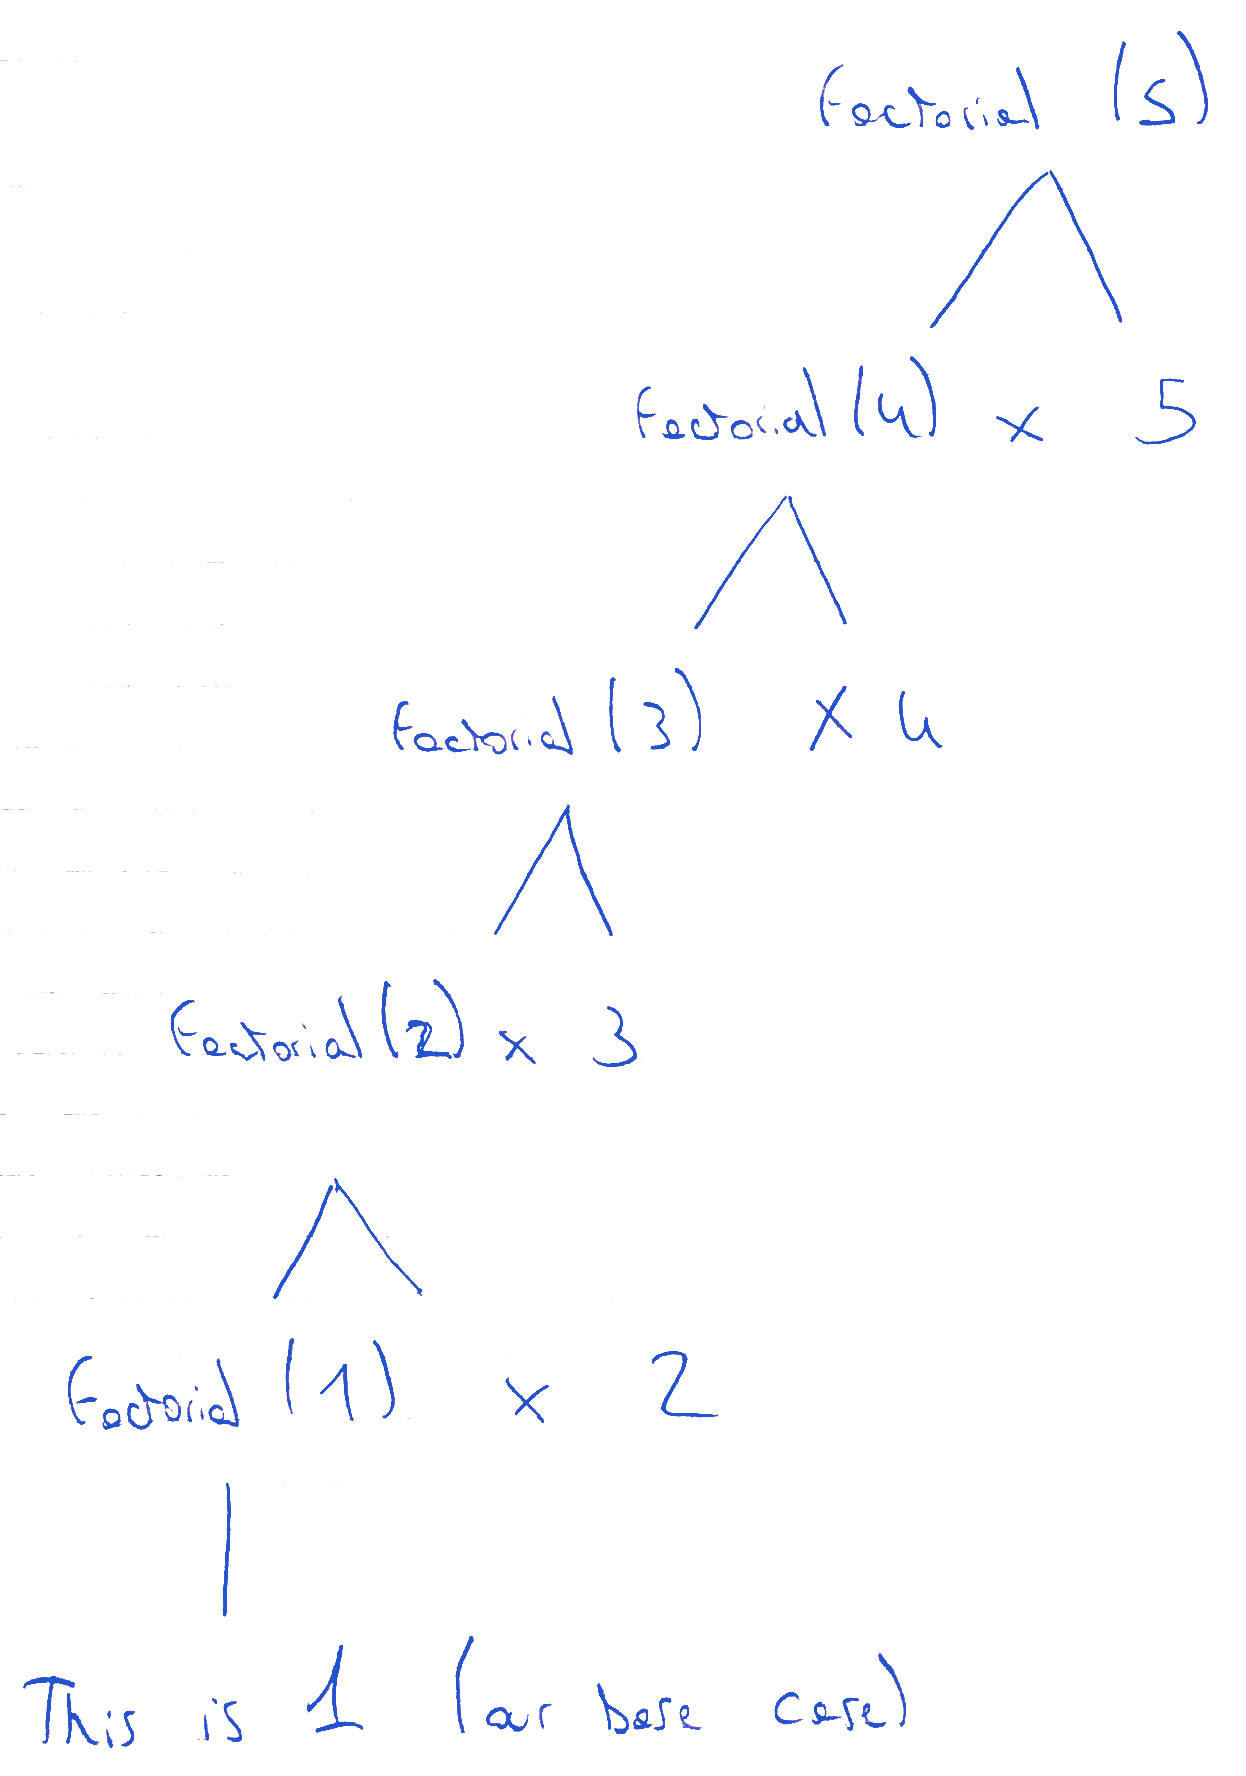 Factorial (5)
Factorial (4) x 5
Factorial (3) x 4
Factorial (2) x 3
Factorial (1) x 2
This is 1 (our base case)